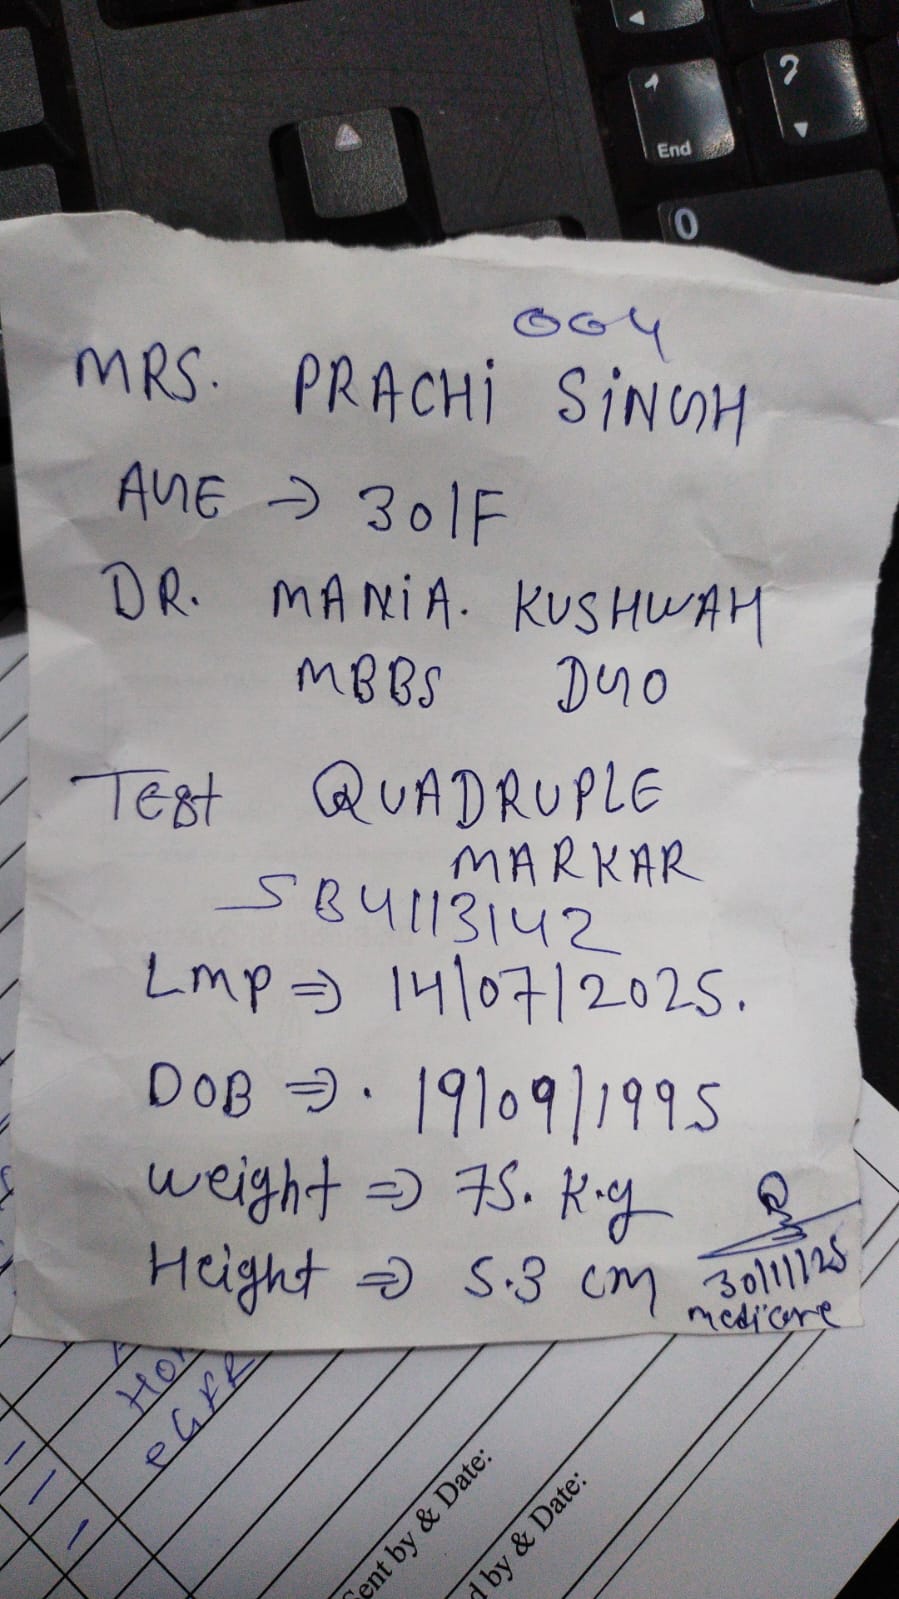 End
?
0
004
MRS. PRACHi SiNGH
AGE → 30/F
DR. MANiA. KUSHWAH
MBBS DGO
Test QUADRUPLE
MARKAR
SB4113142
LMP ⇒ 14/07/2025.
DOB ⇒. 19/09/1995
Weight ⇒ 75. K.g
Height ⇒ 5.3 cm
30/11/25
medicare
eGFR
Sent by & Date:
d by & Date: